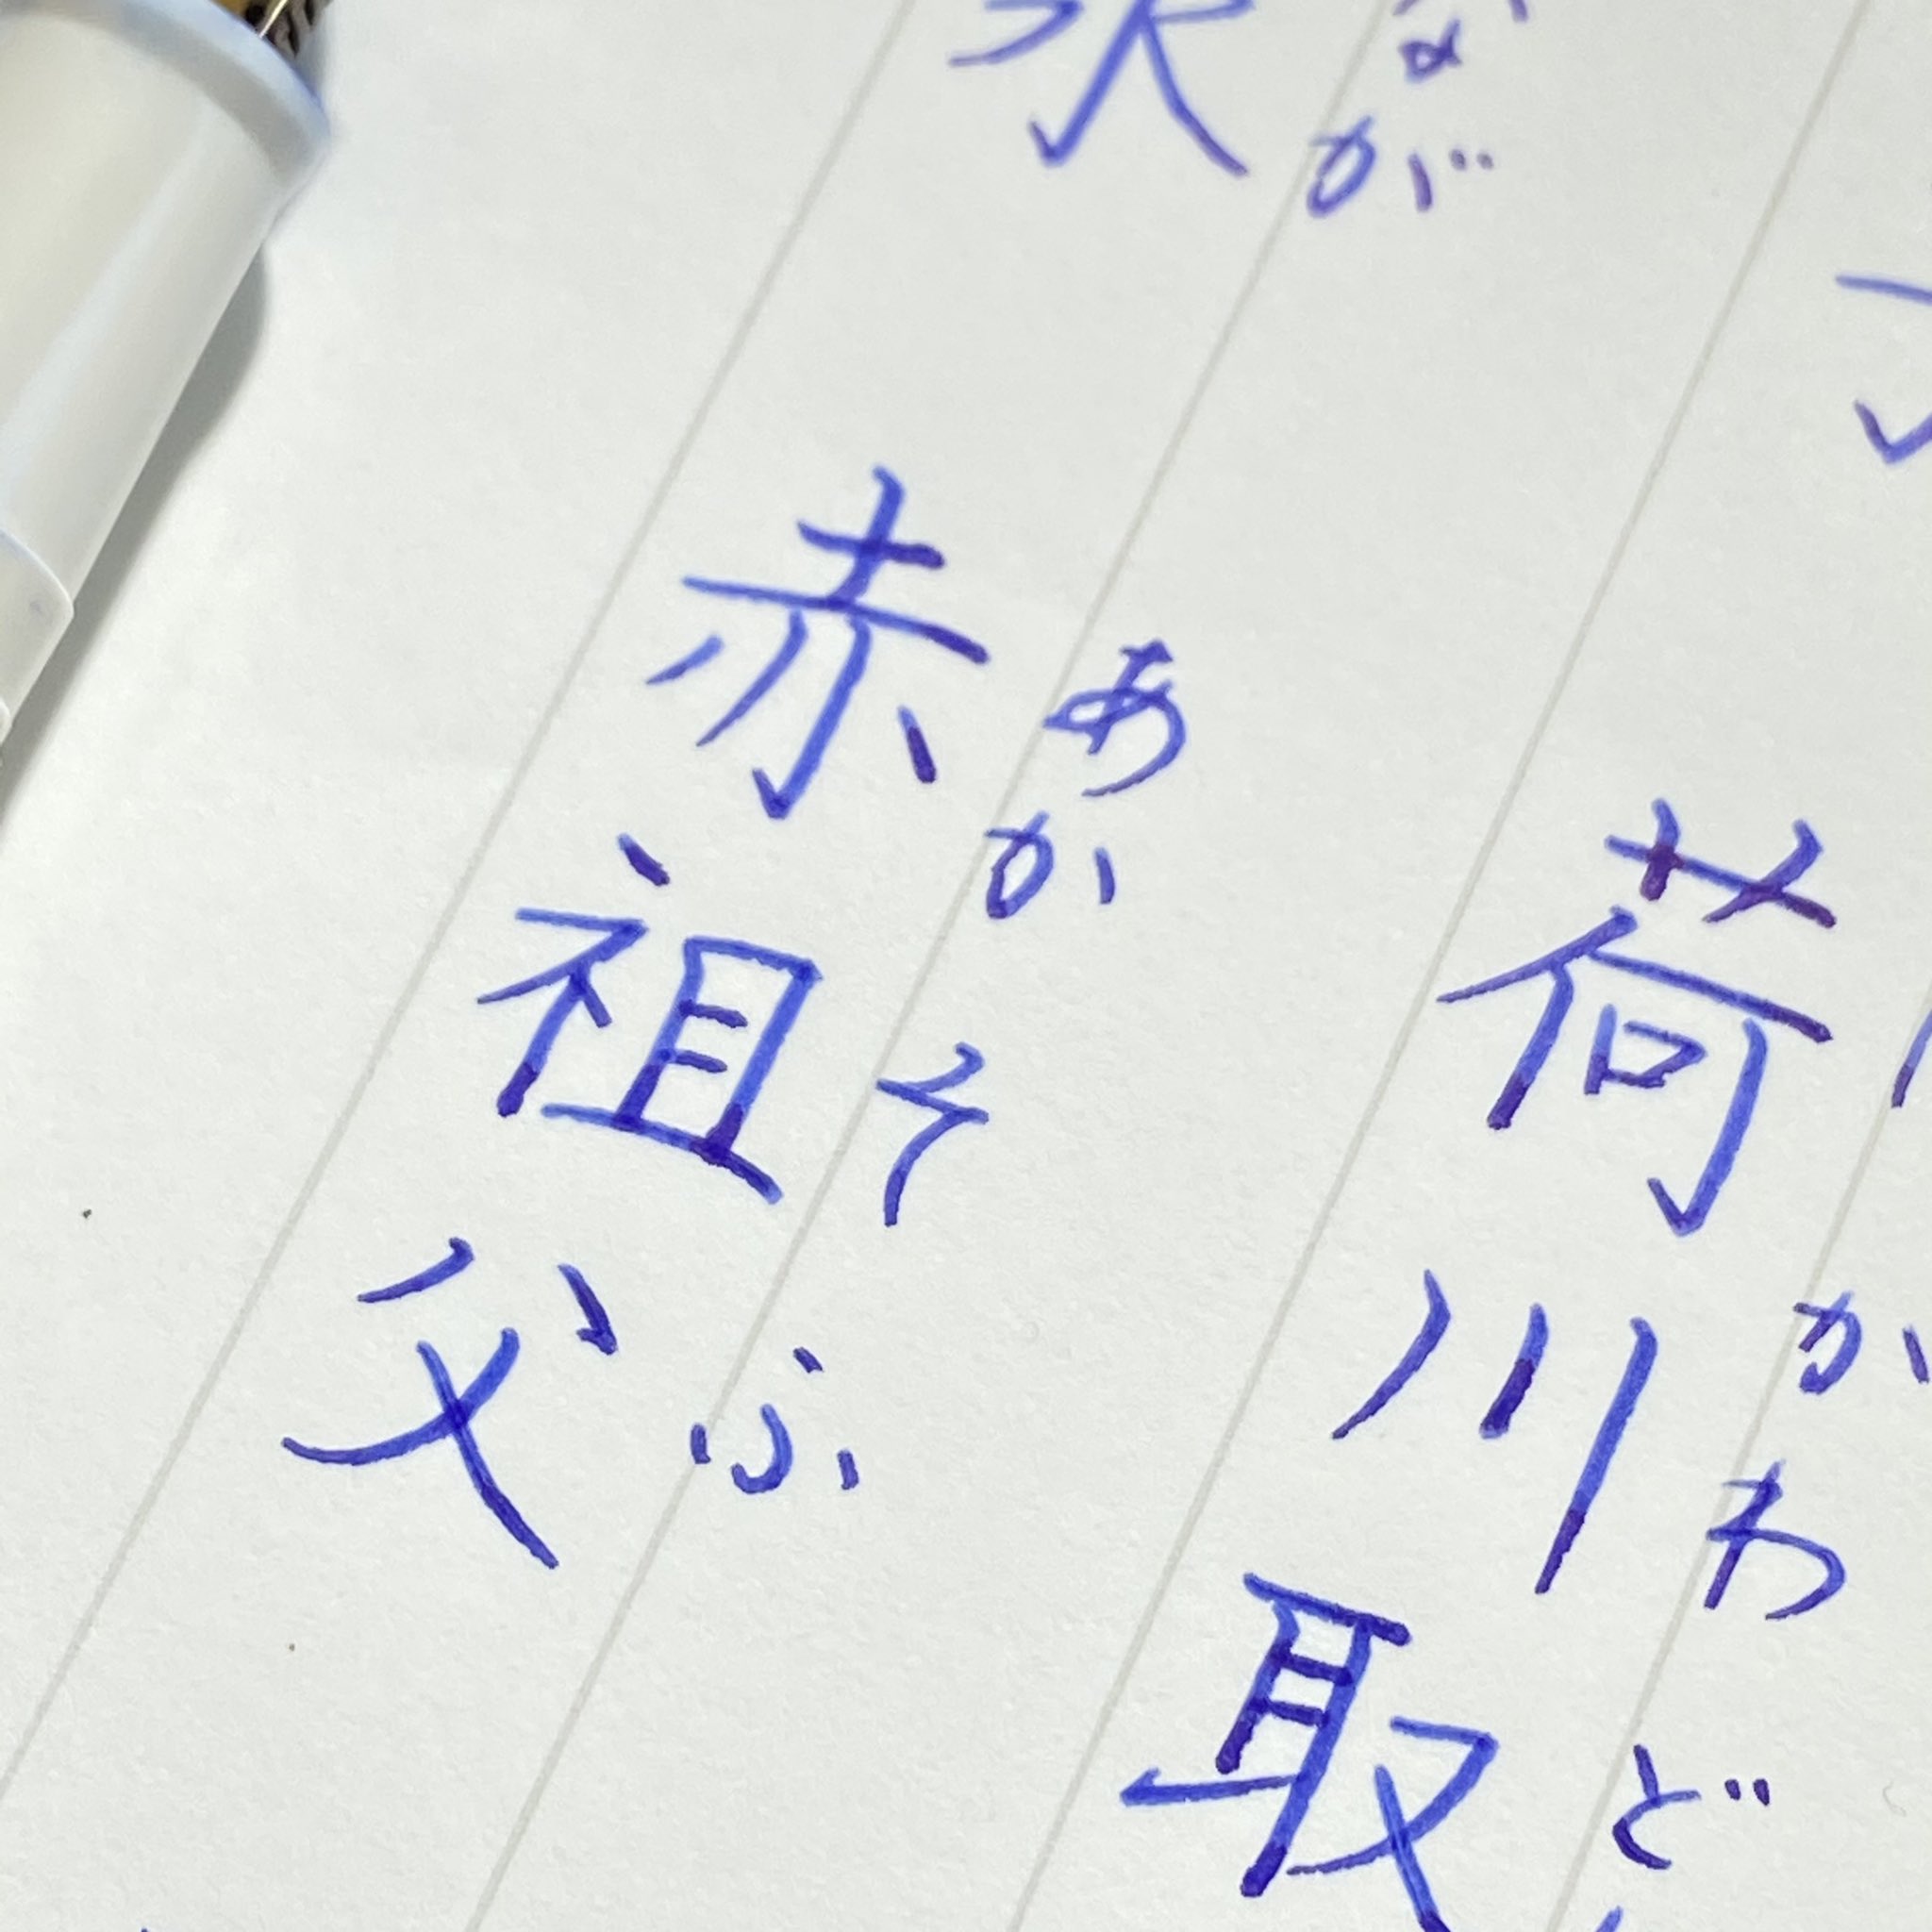 荷川取
かわど
永
なが
赤祖父
あかそふ